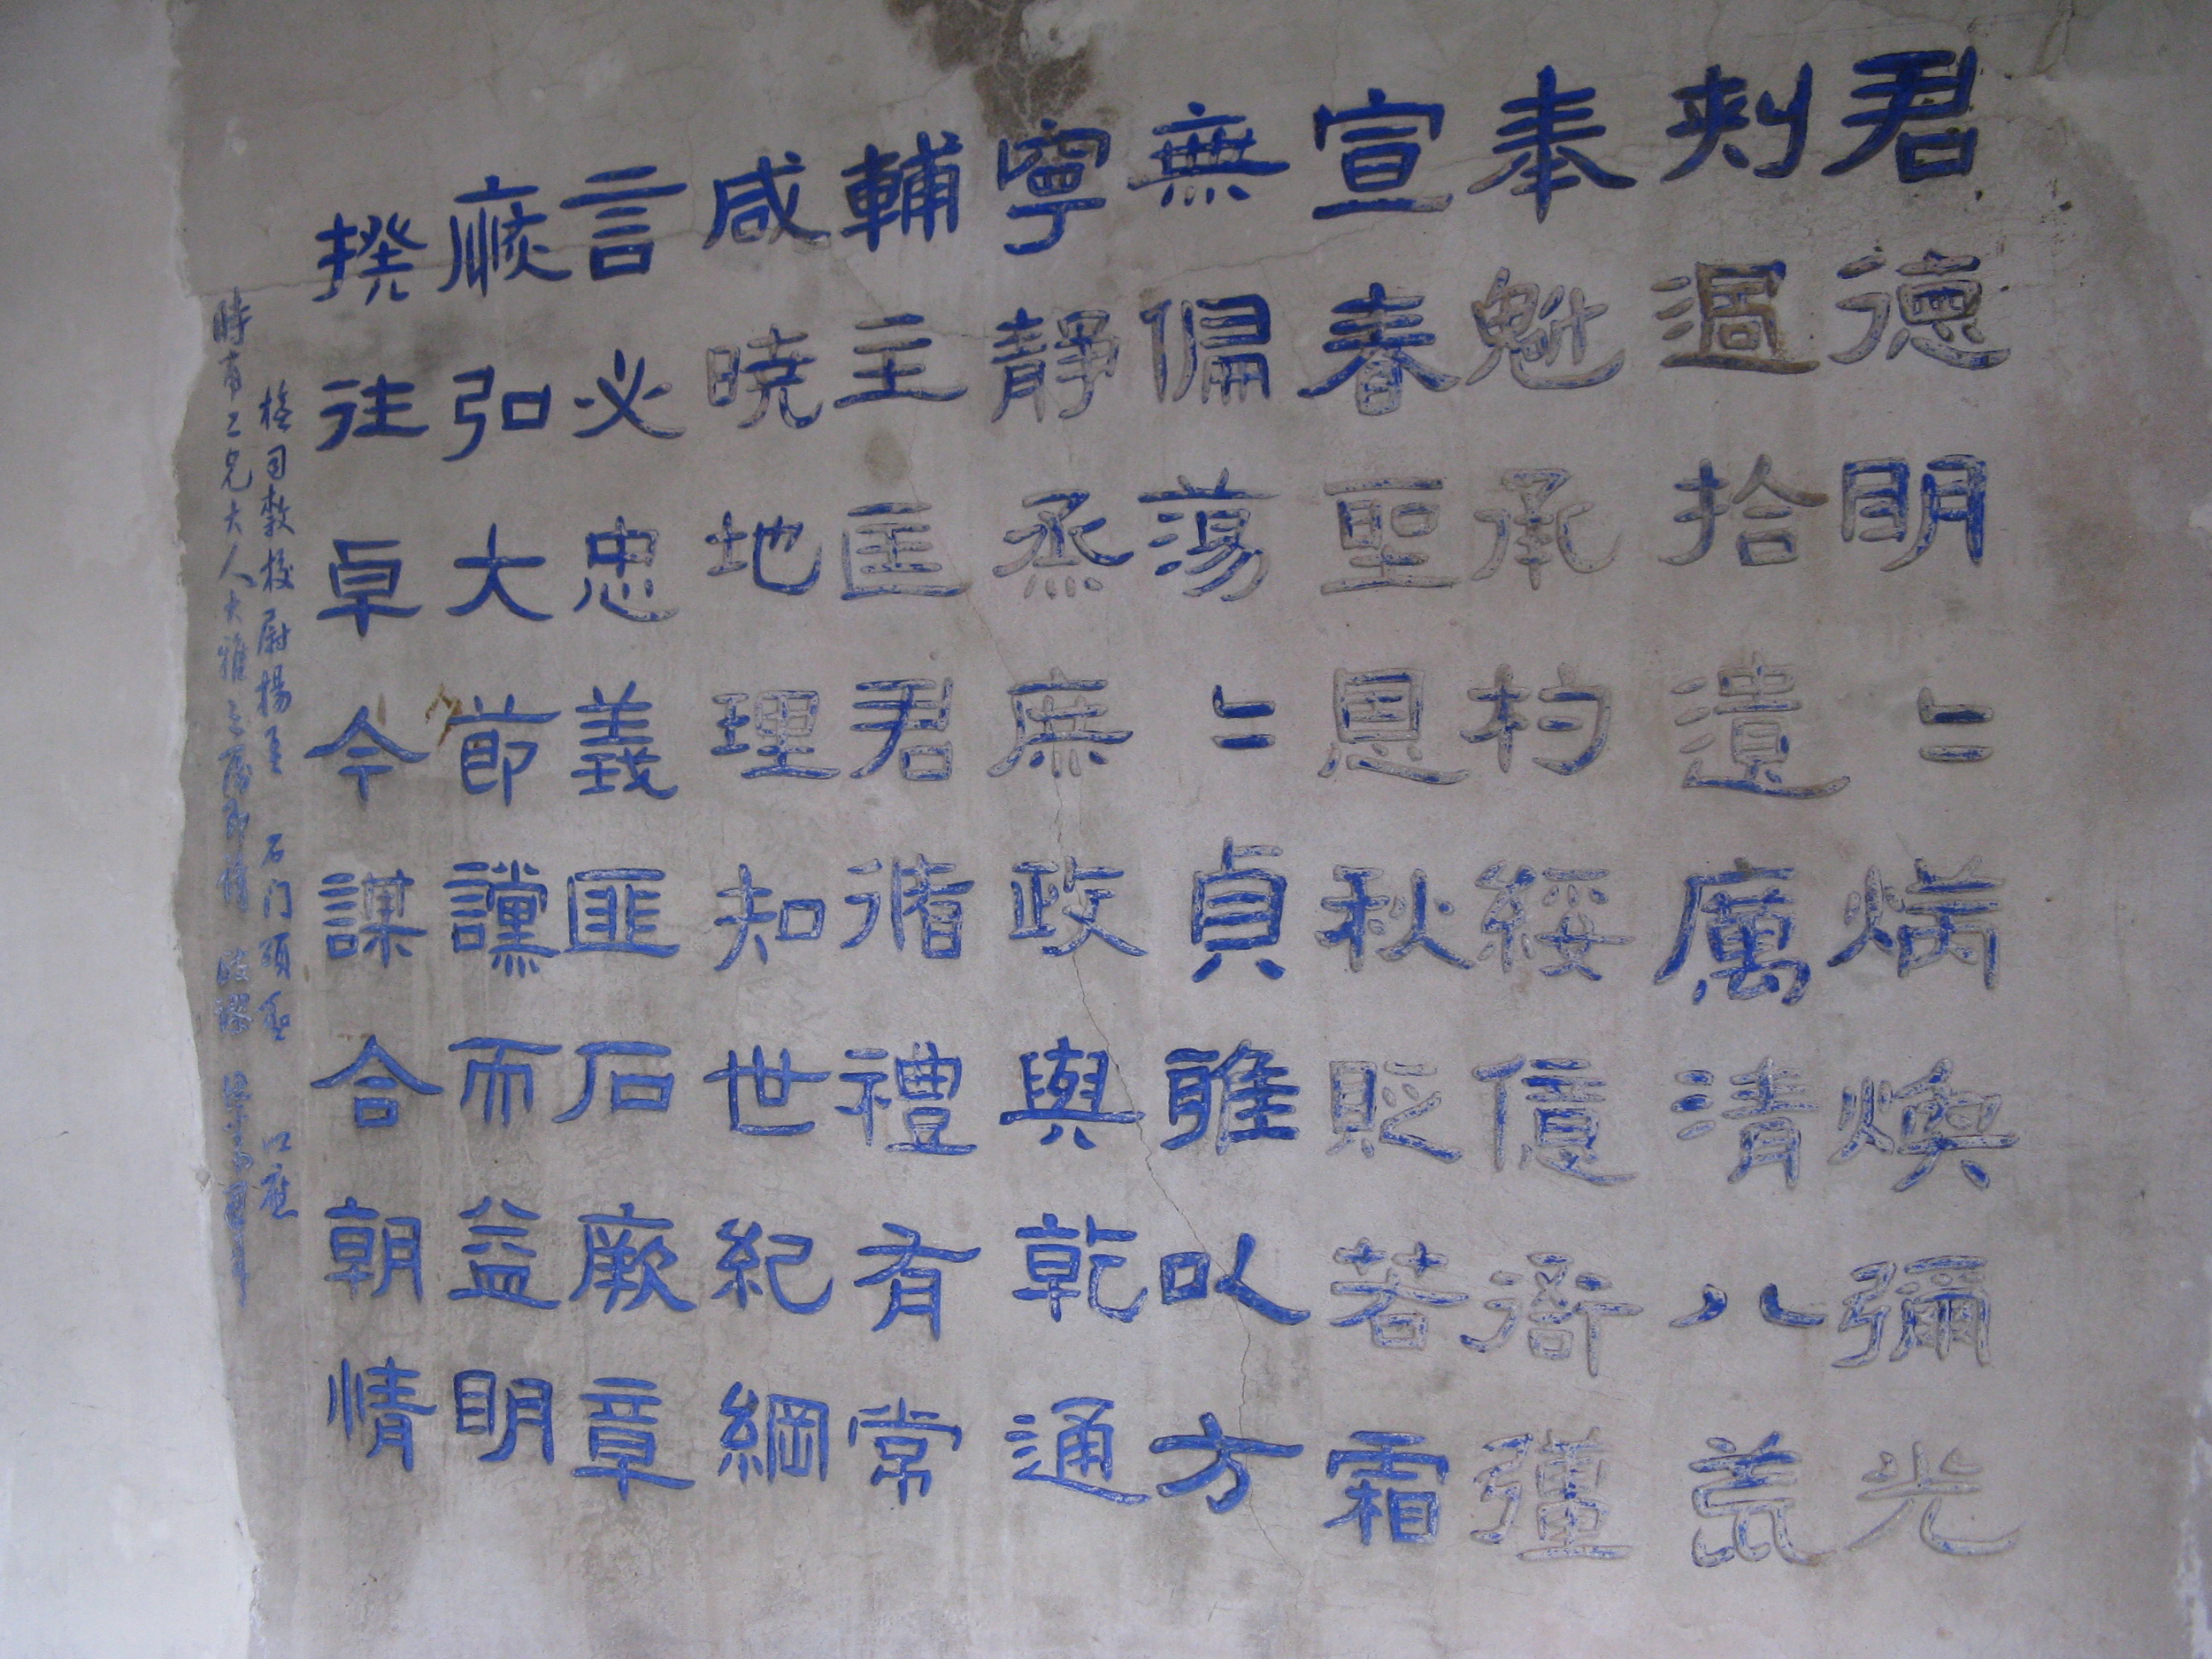 君德明＝炳煥彌光
刺過拾遺厲清八荒
奉魁承杓綏億衙彊
宣春聖恩秋貶若霜
無偏蕩＝貞雅以方
寧靜烝庶政與乾通
輔主匡君循禮有常
咸曉地理知世紀綱
言必忠義匪石厥章
恢弘大節讜而益明
揆往卓今謀合朝情
校尉楊 石门頌
時 二兄大人大雅